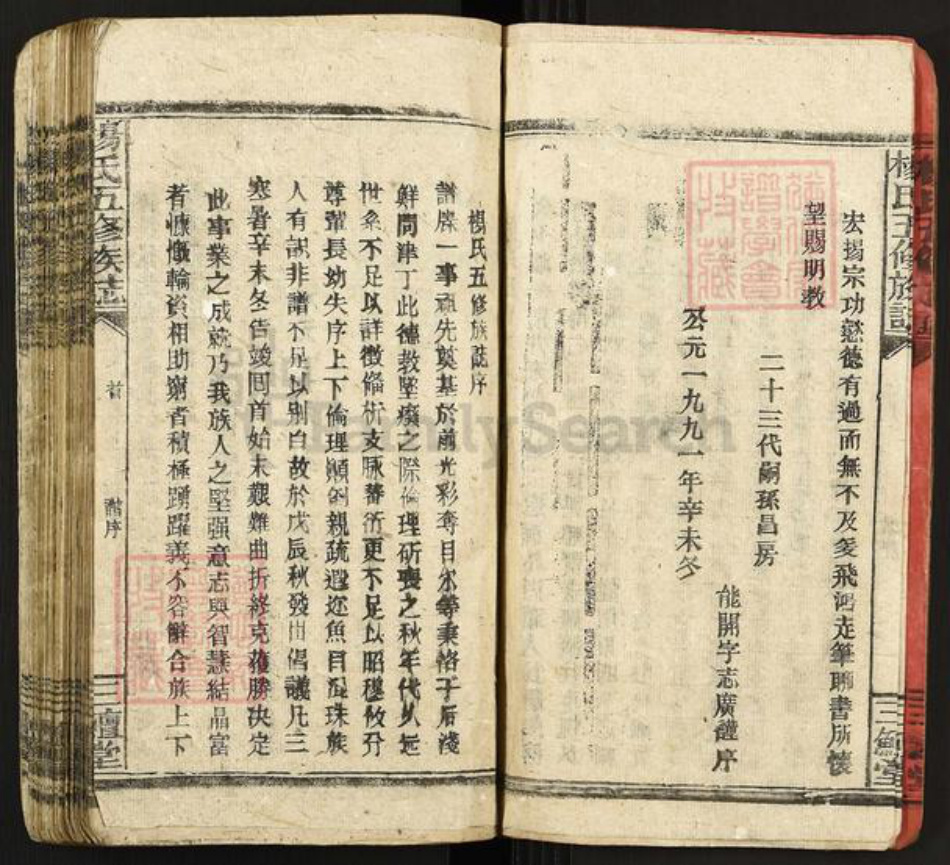 楊氏五修族譜
三鱣堂
宏揚宗功懿德有過而無不及爰飛鴻走筆聊書所懷
望賜明教
二十三代嗣孫昌房
能開字志廣謹序
公元一九九一年辛未冬
楊氏五修族誌序
譜牒一事祖先奠基於前光彩奪目尔等秉恪于后淺
鮮問津丁此德教墜癈之際倫理斫喪之秋年代久远
世系不足以詳徵條析支脉蕃衍更不足以昭穆攸分
尊輩長幼失序上下倫理顚倒親疏遐迩魚目混珠族
人有識非譜不足以别白故於戊辰秋發出倡議凡三
寒暑辛未冬告竣囘首始末艱難曲折終克獲勝决定
此事業之成就乃我族人之坚强意志與智慧結晶富
者慷慨輸資相助窮者積極踴躍義不容辭合族上下
楊氏五修族誌
首
譜序
三鱣堂
FamilySearch